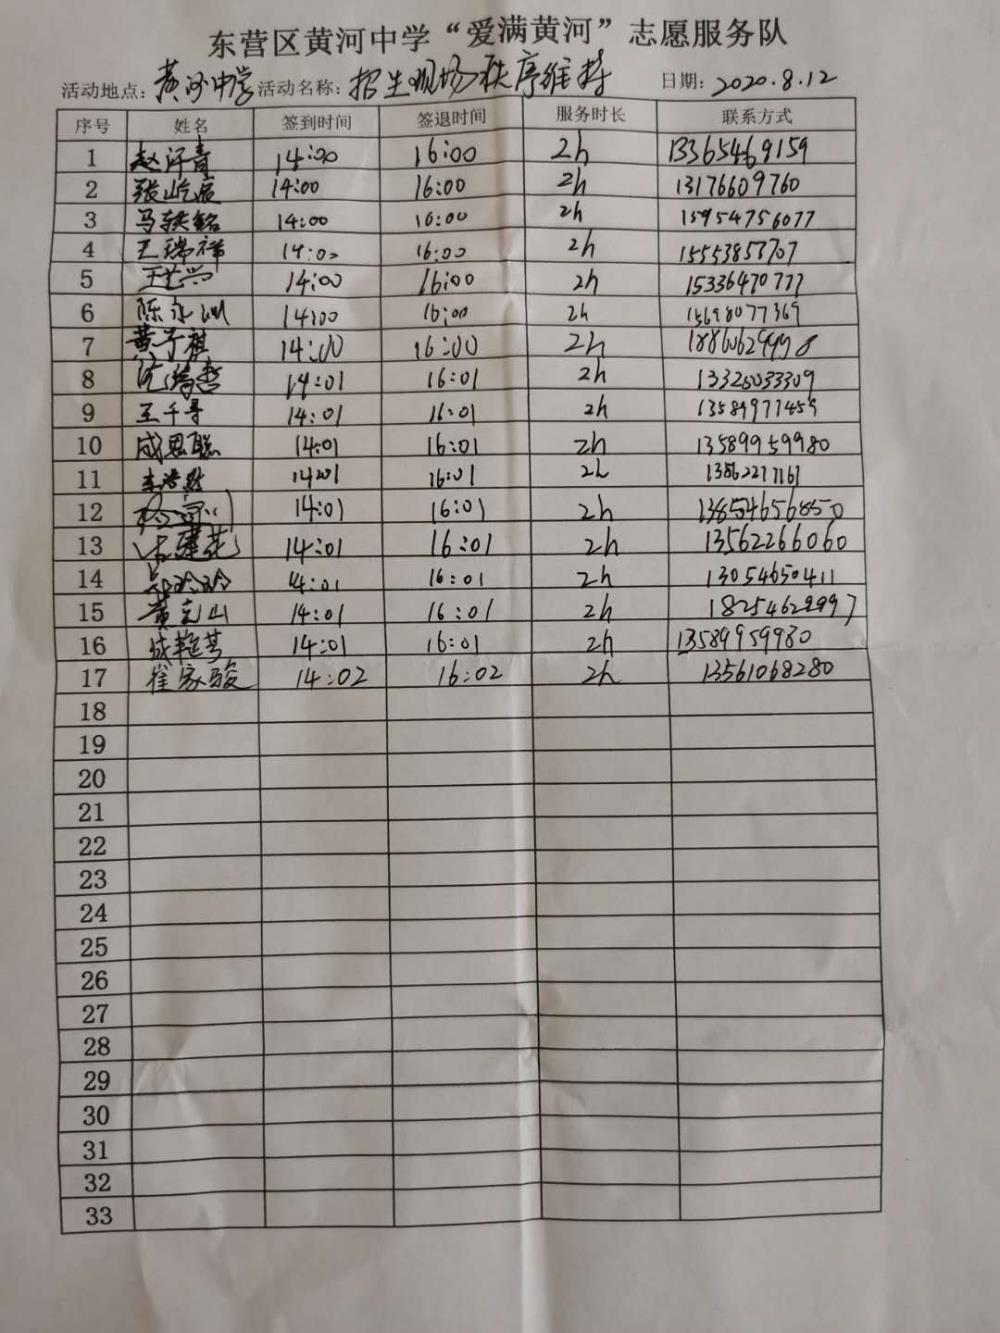 东营区黄河中学“爱满黄河”志愿服务队
活动地点：黄河中学 活动名称：招生现场秩序维持 日期：2020.8.12
序号 姓名 签到时间 签退时间 服务时长 联系方式
1 赵汗青 14:00 16:00 2h 13365469159
2 张屹宸 14:00 16:00 2h 13176609760
3 马轶铭 14:00 16:00 2h 15954756077
4 王瑞祥 14:00 16:00 2h
5 14:00 16:00 2h 15336470777
6 陈 14:00 16:00 2h 15698077369
7 黄子祺 14:00 16:00 2h
8 14:01 16:01 2h
9 王千寻 14:01 16:01 2h
10 成思聪 14:01 16:01 2h 13589959980
11 李浩然 14:01 16:01 2h
12 14:01 16:01 2h
13 14:01 16:01 2h 13562266060
14 14:01 16:01 2h 13054650411
15 黄克山 14:01 16:01 2h 18254629997
16 14:01 16:01 2h 13589959980
17 崔家骏 14:02 16:02 2h 13561068280
18
19
20
21
22
23
24
25
26
27
28
29
30
31
32
33